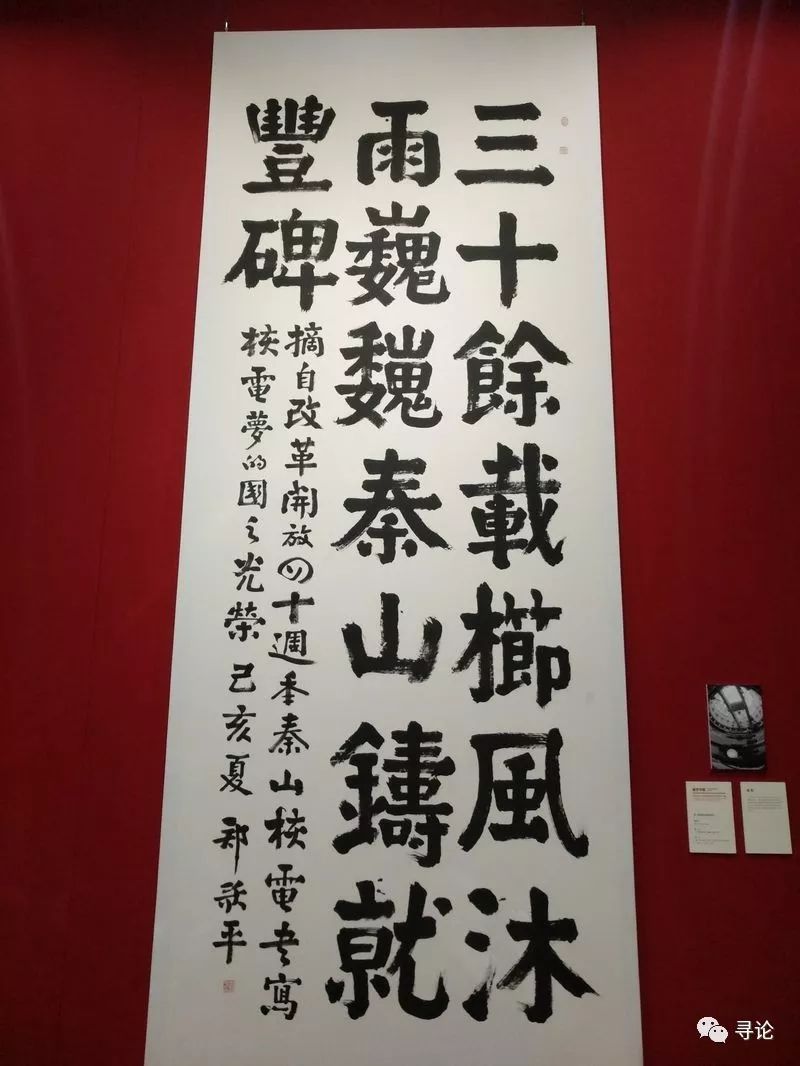 三十餘載櫛風沐
雨巍巍秦山鑄就
豐碑
摘自改革開放四十週年秦山核電書寫
核電夢的國之光榮 己亥夏 鄭 平
寻论